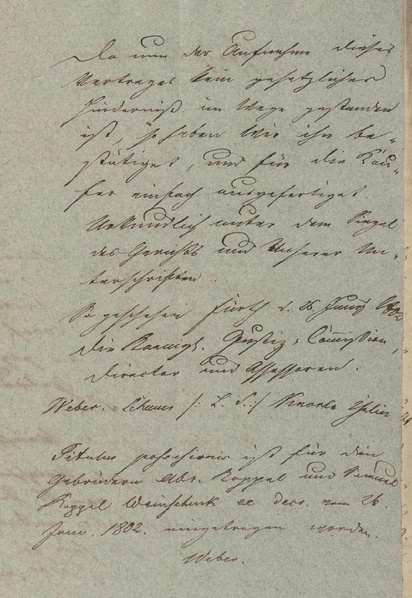 Da nun der Aufnahme dieses
Vertrages kein gesetzliches
Hinderniß im Wege gestanden
ist, so haben Wir ihn be-
stätiget, und für die Käu-
fer einfach ausgefertiget.
Urkundlich unter dem Siegel
des Gerichts und Unserer Un-
terschriften.
So geschehen Fürth d. 26 Juny 1802
Die Koenigl. Justiz-Commission
Director und Assessoren.
Weber. /: L. S. :/
Titulus possessionis ist für die
Gebrüdern Abr. Koppel und Samuel
Koppel Weinschenk ex decr. vom 26
Juni 1802. eingetragen worden.
Weber.